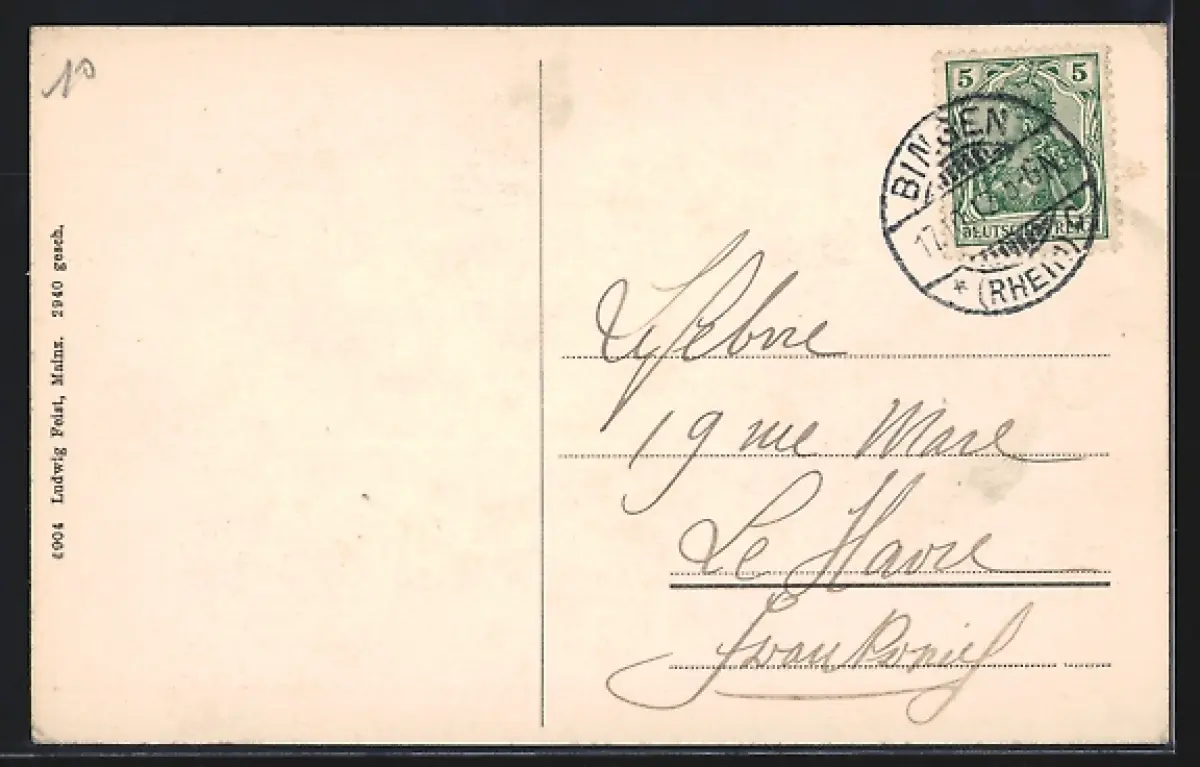 5 5
DEUTSCHES REICH
BINGEN
17.
6-7N.
* (RHEIN)
Lefebvre
19 rue Mare
Le Havre
Frankreich
6904 Ludwig Feist, Mainz. 2940 gesch.